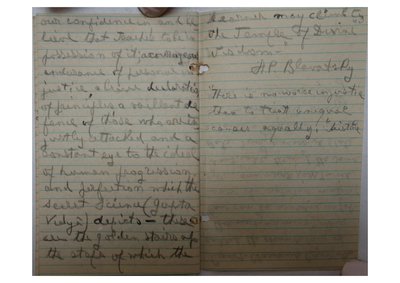 our confidence in and be
lieve that Teacher to be in
possession of it; a courageous
endurance of personal in
justice a brave declaration
of principles a valiant de
fence of those who are un
justly attacked and a
constant eye to the ideal
of human progression
and perfection which the
Secret Science (Gupta
Vidya) depicts — these
are the golden stairs up
the steps of which the
Learner may climb to
the Temple of Divine
Wisdom.
H.P. Blavatsky
There is no worse injustice
than to treat unequal
causes equally.